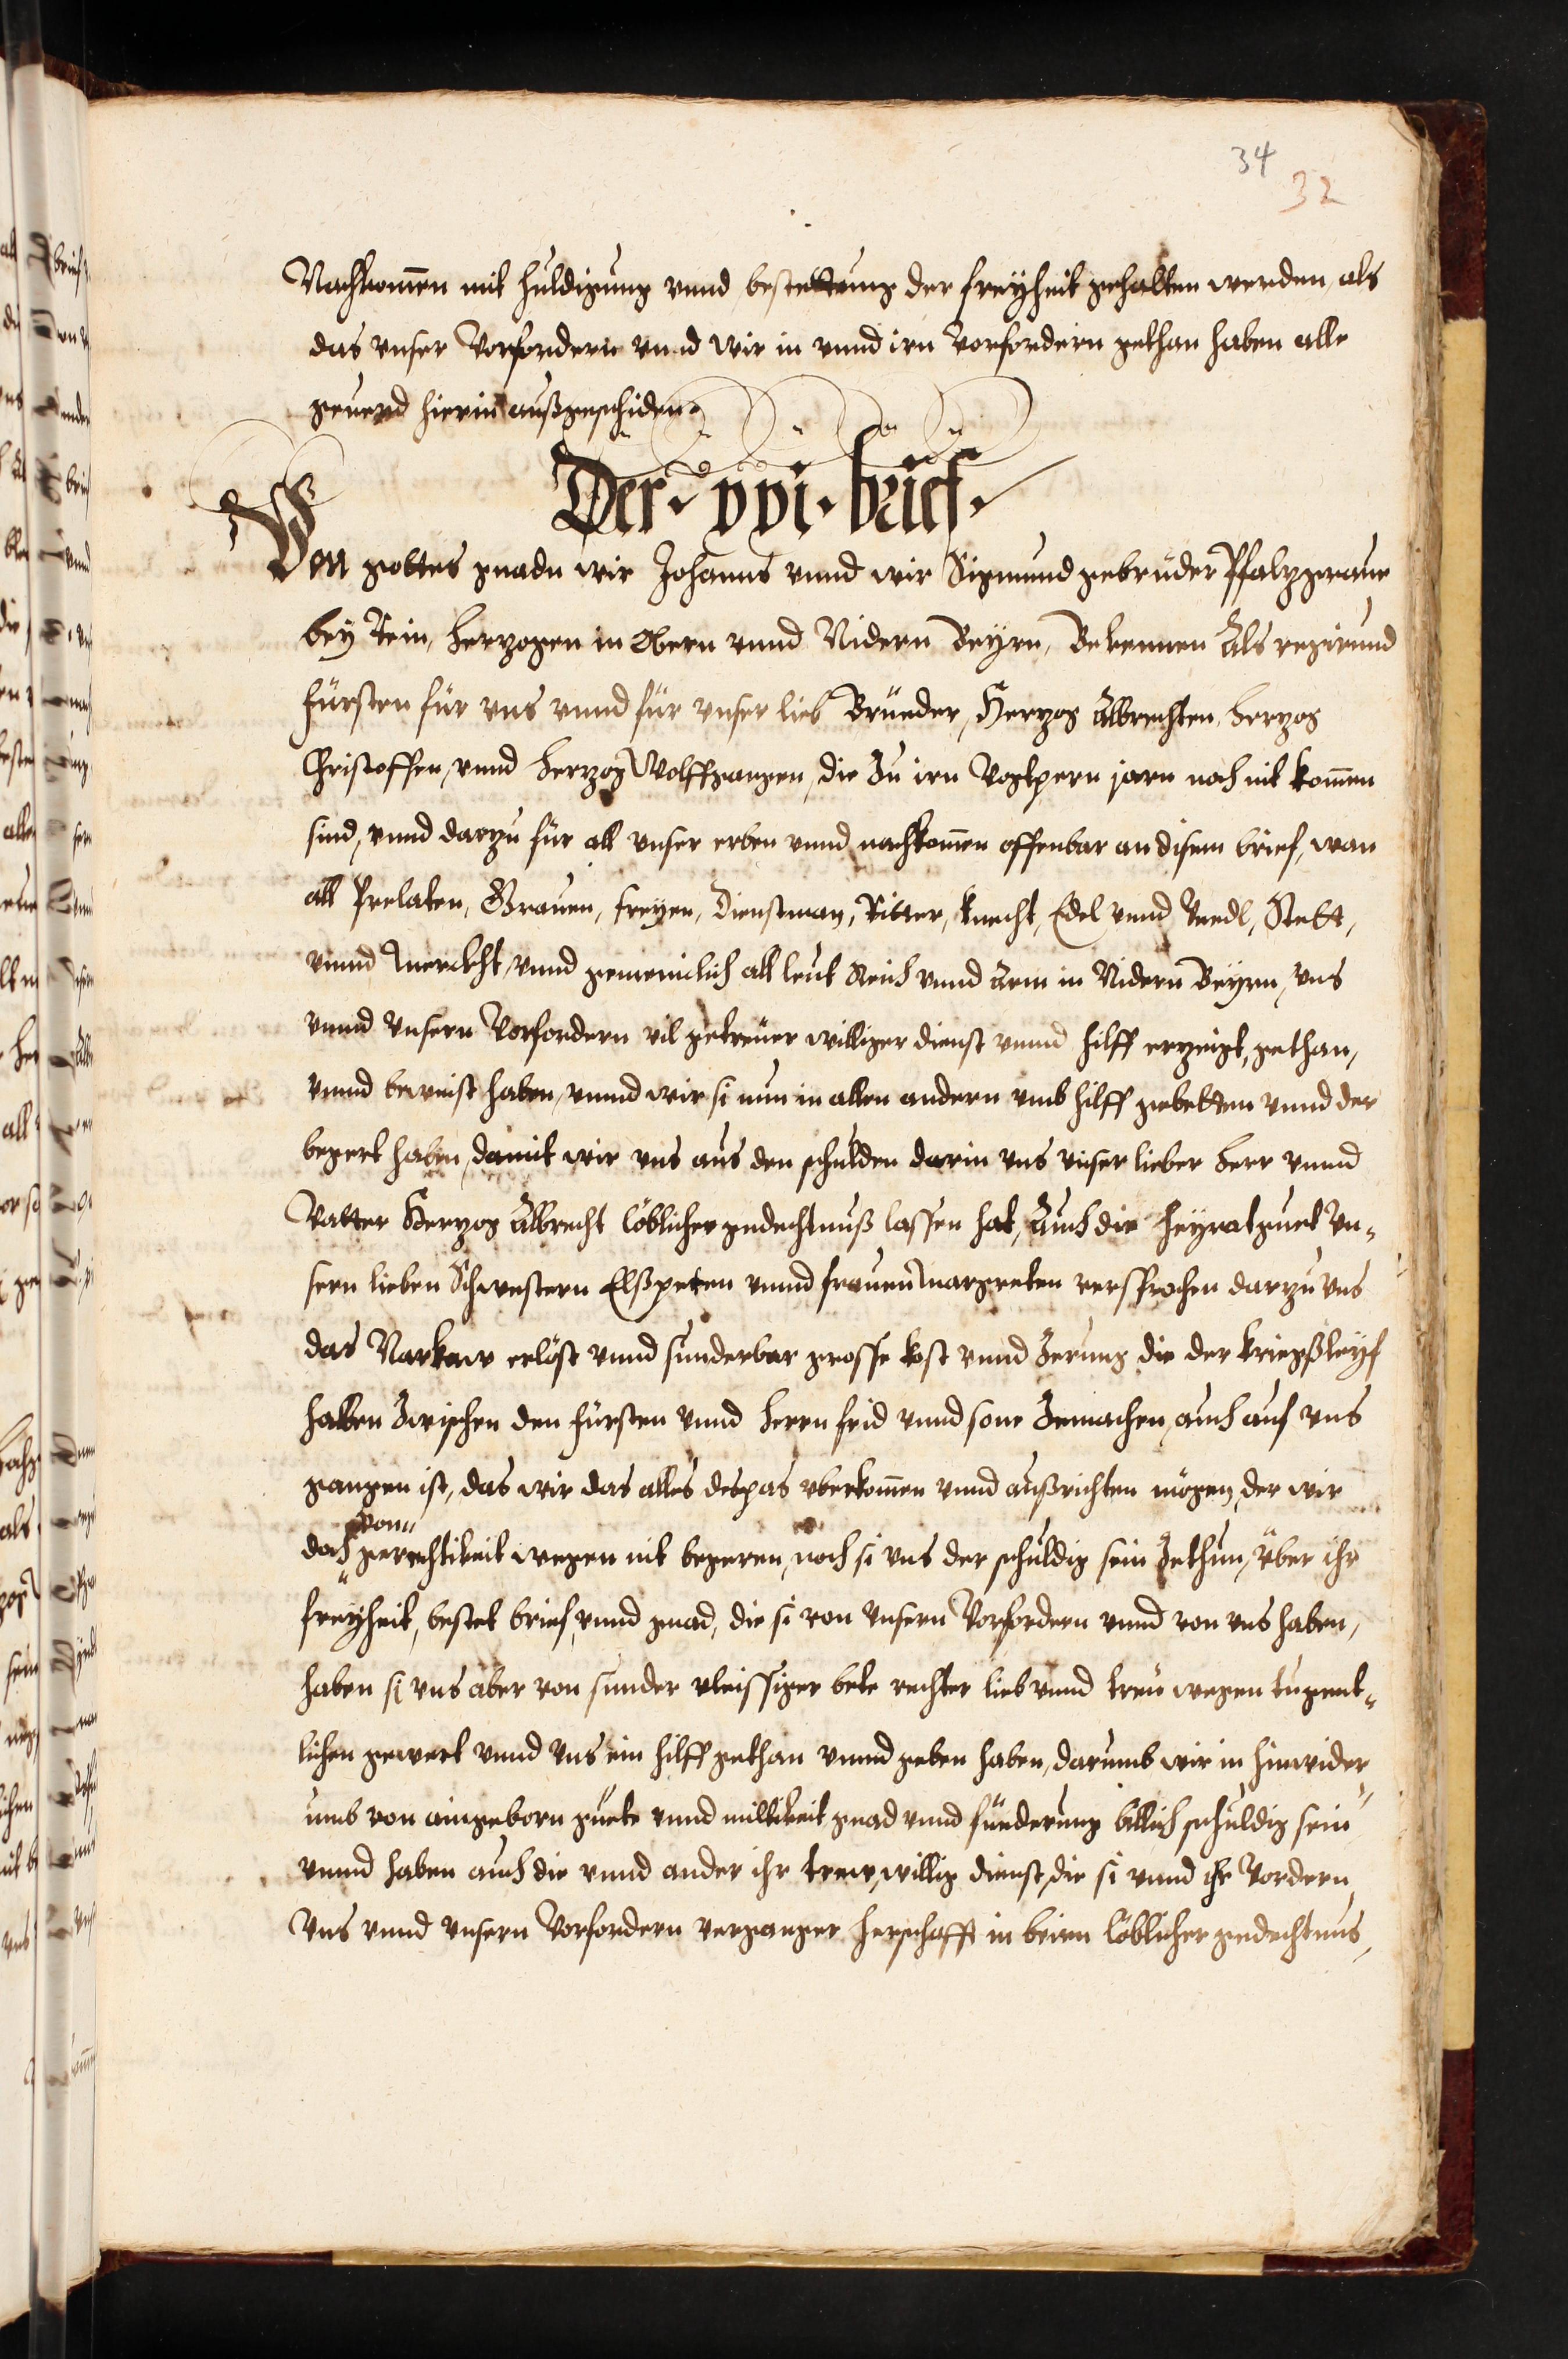 34
32
Nachkomen mit huldigung vnnd bestettung der freyheit gehalten werden, als
das vnser Vorfordern vnnd wir in vnnd irn Vorfordern gethan haben alle
geuerd hierin außgeschiden.
Der. xxi. brief.
Von gottes gnadn wir Johanns vnnd wir Sigmund gebrüder Pfalzgraue
bey Rein, Herzogen in Obern vnnd Nidern Beyrn, Bekennen Als regirund
fürsten für vns vnnd für vnser lieb Brüeder, Herzog Albrechten, Herzog
Christoffen, vnnd Herzog Wolffgangen, die Zu irn Vogtpern jarn noch nit komen
sind, vnnd darzu für all vnser erben vnnd nachkomen offenbar an disem brief, wan
all Prelaten, Grauen, freyen, Dienstman, Ritter, knecht, Edel vnnd Vnedl, Stett,
vnnd Merckht, vnnd gemeinclich all leut Reich vnnd Arm in Nidern Beyrn, vns
vnnd vnsern Vorfordern vil getreuer williger dienst vnnd hilff erzeigt, gethan,
vnnd beweist haben, vnnd wir si nun in allen andern vmb hilff gebetten vnnd der
begert haben, damit wir vns aus den schulden darin vns vnser lieber Herr vnnd
Vatter Herzog Albrecht löblicher gedechtnuß lassen hat, Auch die Heyratguet Vn-
sern lieben Schwestern Elßpeten vnnd frauen Margreten versprochen darzu vns
das Narkaw erlöst vnnd sunderbar grosse kost vnnd Zerung die der kriegßleyf
halben Zwischen den fürsten vnnd Herrn frid vnnd sone Zemachen, auch auf vns
gangen ist, das wir das alles despas vberkomen vnnd außrichten mögen, der wir
von
doch gerechtikeit wegen nit begeren, noch si vns der schuldig sein Zethun, über ihr
freyheit, bestet brief, vnnd gnad, die si von vnsern Vorfordern vnnd von vns haben,
haben si vns aber von sunder vleissiger bete rechter lieb vnnd treu wegen tugent-
lichen gewert vnnd vns ein hilff gethan vnnd geben haben, darumb wir in hinwider
umb von angeborn guete vnnd miltikeit gnad vnnd fürderung billich schuldig sein
vnnd haben auch die vnnd ander ihr trew, willig dienst, die si vnnd ihr Vordern
Vns vnnd vnsern Vorfordern vergangner herschafft in beirn löblicher gedechtnus,